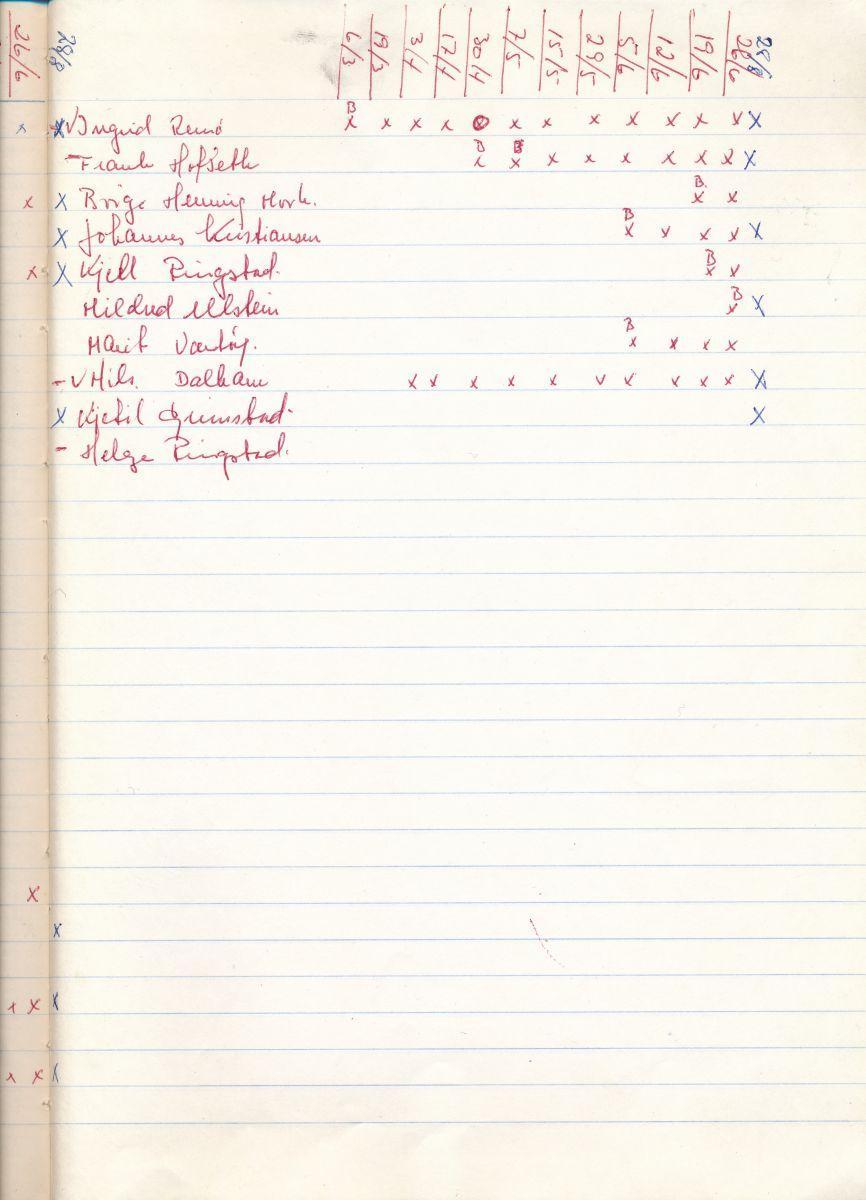 26/6 28/8 6/3 19/3 3/4 17/4 30/4 7/5 15/5 29/5 5/6 12/6 19/6 26/6 28/8
B
x x v Ingrid Remö x x x x x x x x x x x x x
B B
- Frank Hofseth x x x x x x x x x
B
x x Börge Henning x x
B
x Johannes Kristiansen x x x x x
B
x x Kjell Ringstad. x x
B
Mildred Ulstein x x
B
Marit x x x x
- v Nils Dalhaug x x x x x v x x x x x
x Kjetil Grimstad x
- Helge Ringstad.
x
x
x x x
x x x